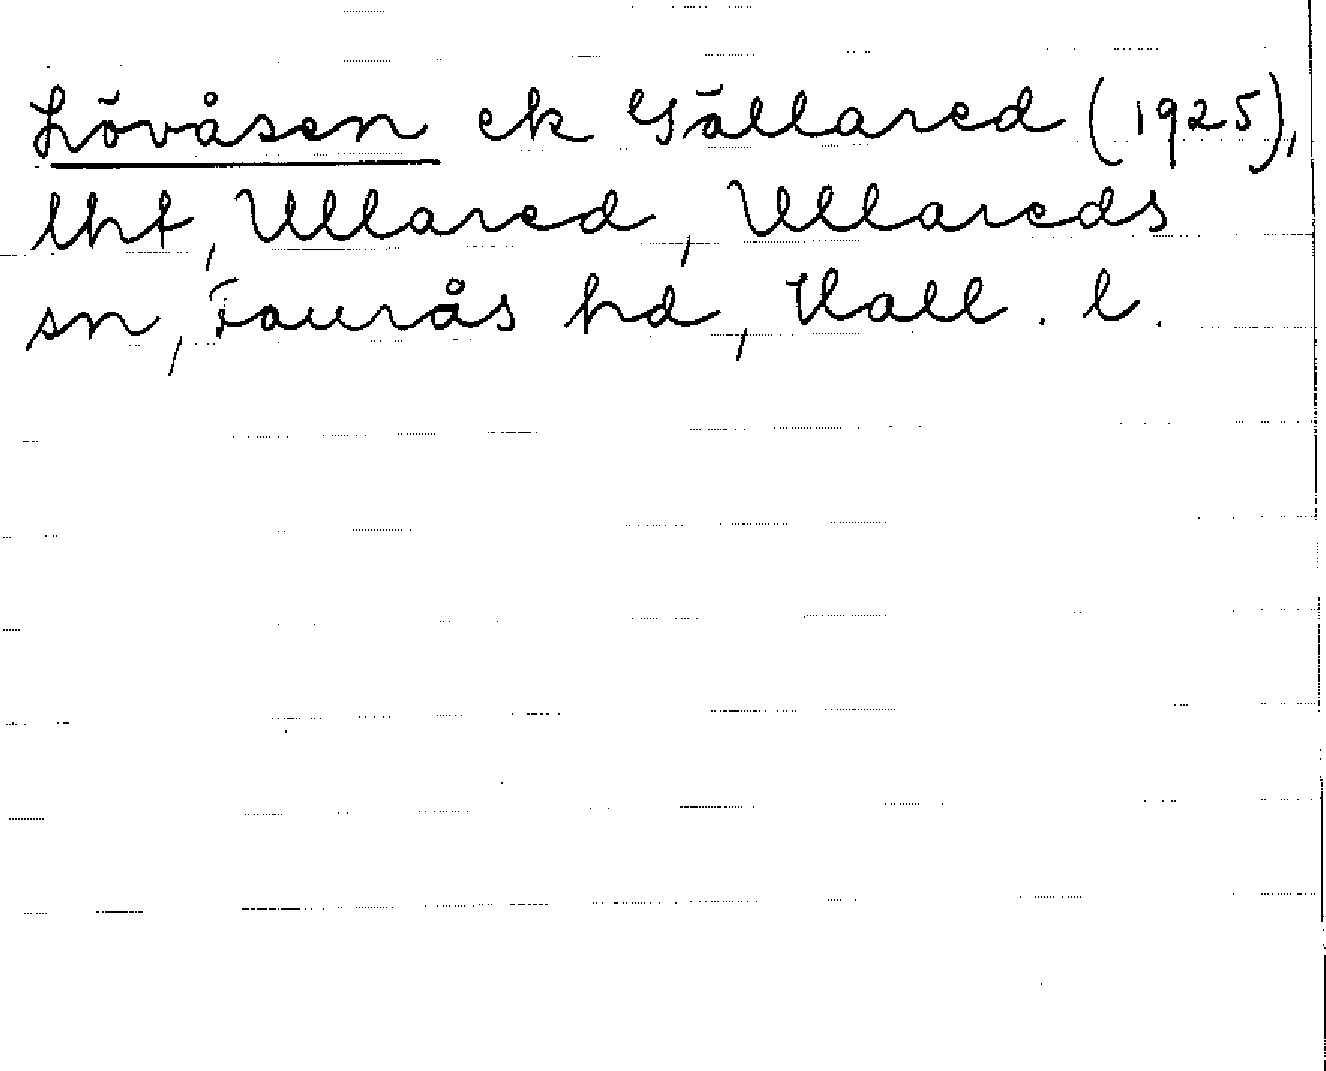 Lövåsen ek Gällared (1925),
lht, Ullared, Ullareds
sn, Faurås hd, Hall. l.